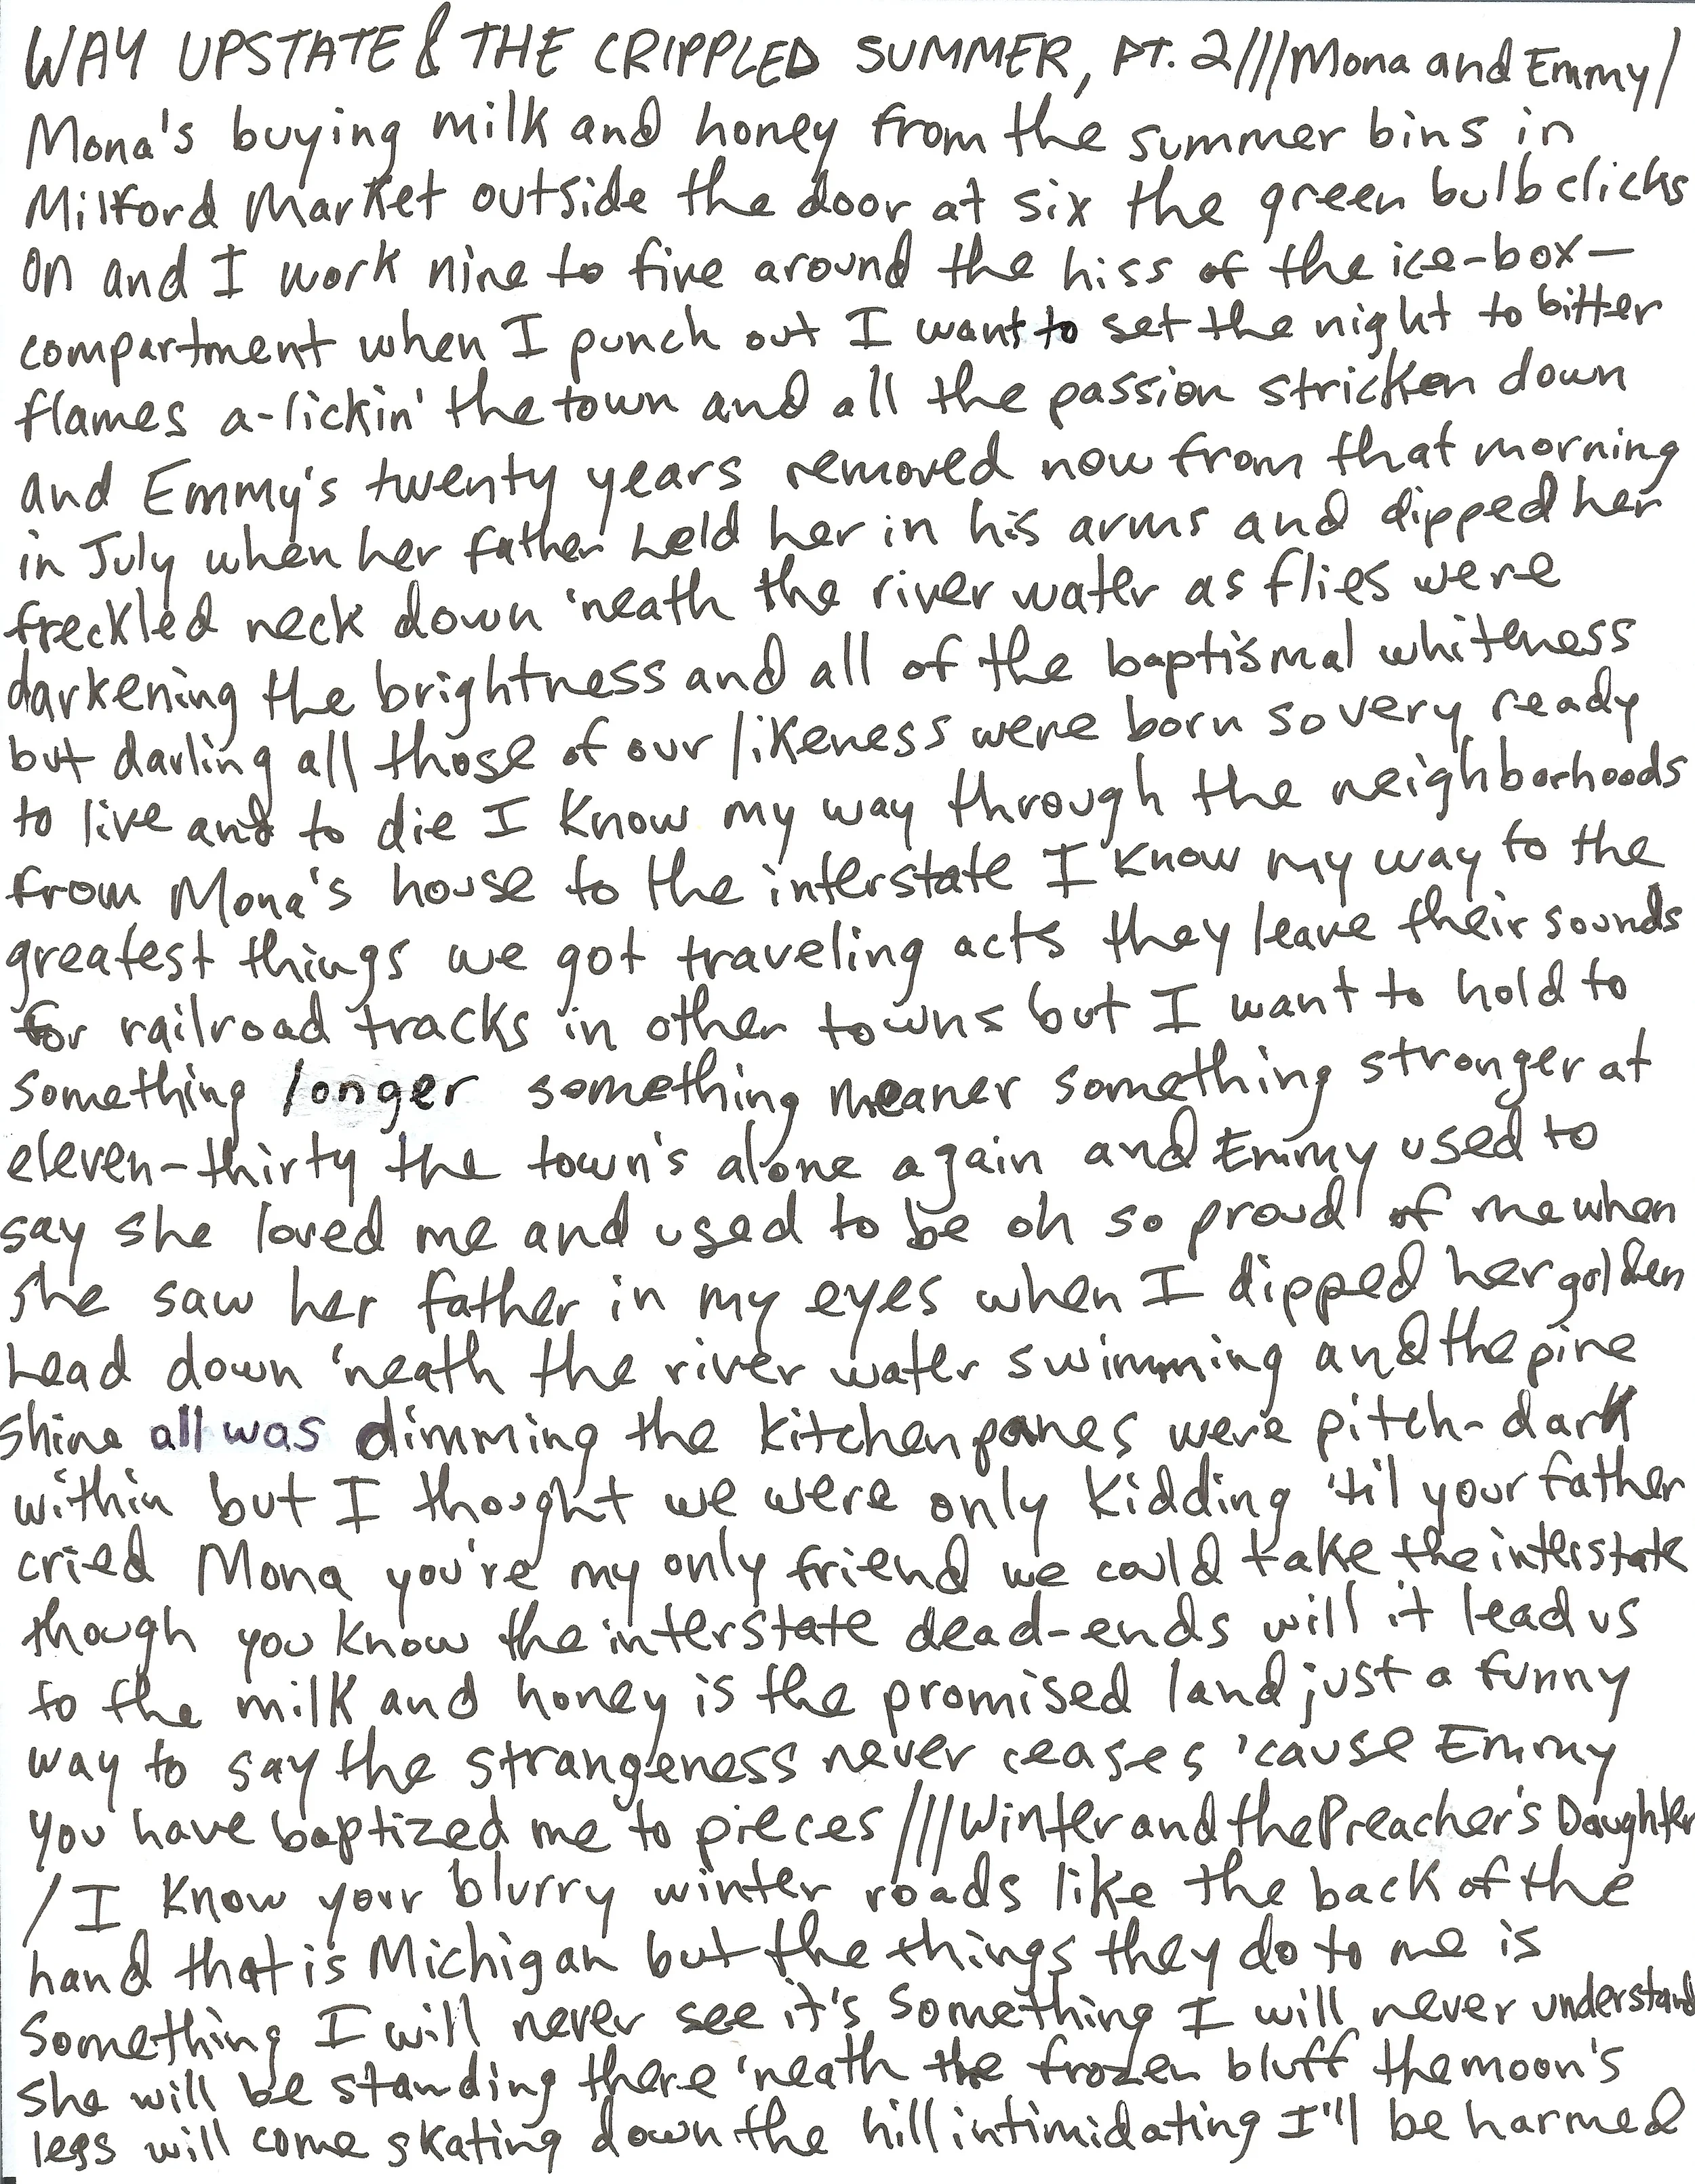 WAY UPSTATE & THE CRIPPLED SUMMER, PT. 2///Mona and Emmy/
Mona's buying milk and honey from the summer bins in
Milford Market outside the door at six the green bulb clicks
on and I work nine to five around the hiss of the ice-box-
compartment when I punch out I want to set the night to bitter
flames a-lickin' the town and all the passion stricken down
and Emmy's twenty years removed now from that morning
in July when her father held her in his arms and dipped her
freckled neck down 'neath the river water as flies were
darkening the brightness and all of the baptismal whiteness
but darling all those of our likeness were born so very ready
to live and to die I know my way through the neighborhoods
from Mona's house to the interstate I know my way to the
greatest things we got traveling acts they leave their sounds
for railroad tracks in other towns but I want to hold to
something longer something meaner something stronger at
eleven-thirty the town's alone again and Emmy used to
say she loved me and used to be oh so proud of me when
she saw her father in my eyes when I dipped her golden
head down 'neath the river water swimming and the pine
shine all was dimming the kitchen panes were pitch-dark
within but I thought we were only kidding 'til your father
cried Mona you're my only friend we could take the interstate
though you know the interstate dead-ends will it lead us
to the milk and honey is the promised land just a funny
way to say the strangeness never ceases 'cause Emmy
you have baptized me to pieces///Winter and the Preacher's Daughter
/I know your blurry winter roads like the back of the
hand that is Michigan but the things they do to me is
something I will never see it's something I will never understand
she will be standing there 'neath the frozen bluff the moon's
legs will come skating down the hill intimidating I'll be harmed